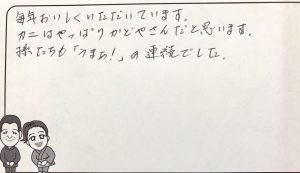 毎年おいしくいただいています。
カニはやっぱりかどやさんだと思います。
孫たちも「うまぁ!」の連続でした。